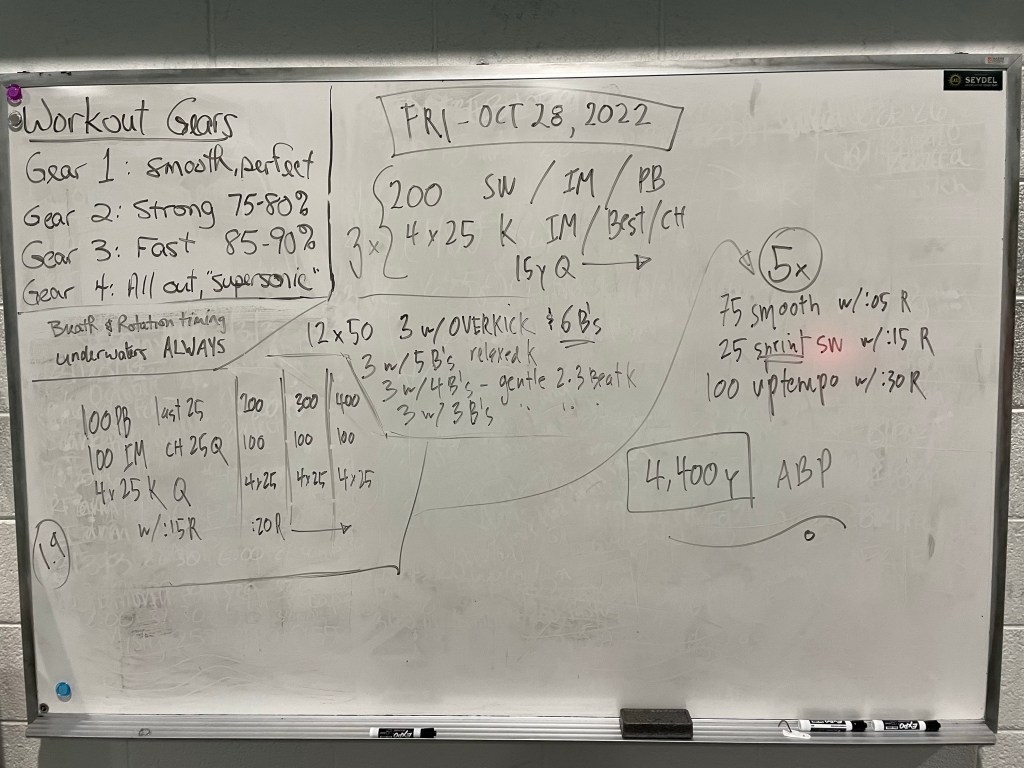 SEYDEL
Workout Gears
Gear 1: smooth, perfect
Gear 2: Strong 75-80%
Gear 3: Fast 85-90%
Gear 4: All out, "supersonic"
FRI - OCT 28, 2022
3x { 200 SW / IM / PB
4 x 25 K IM / Best / CH
15y Q →
Breath & Rotation timing
underwaters ALWAYS
12 x 50 3 w/ OVERKICK & 6 B's
3 w/ 5 B's relaxed K
3 w/ 4 B's - gentle 2.3 Beat K
3 w/ 3 B's " " "
100 PB last 25 | 200 | 300 | 400
100 IM CH 25 Q | 100 | 100 | 100
4 x 25 K Q | 4x25 | 4x25 | 4x25
w/ :15 R :20 R →
1.9
5x
75 smooth w/ :05 R
25 sprint SW w/ :15 R
100 uptempo w/ :30 R
4,400 y ABP
EXPO
EXPO
EXPO